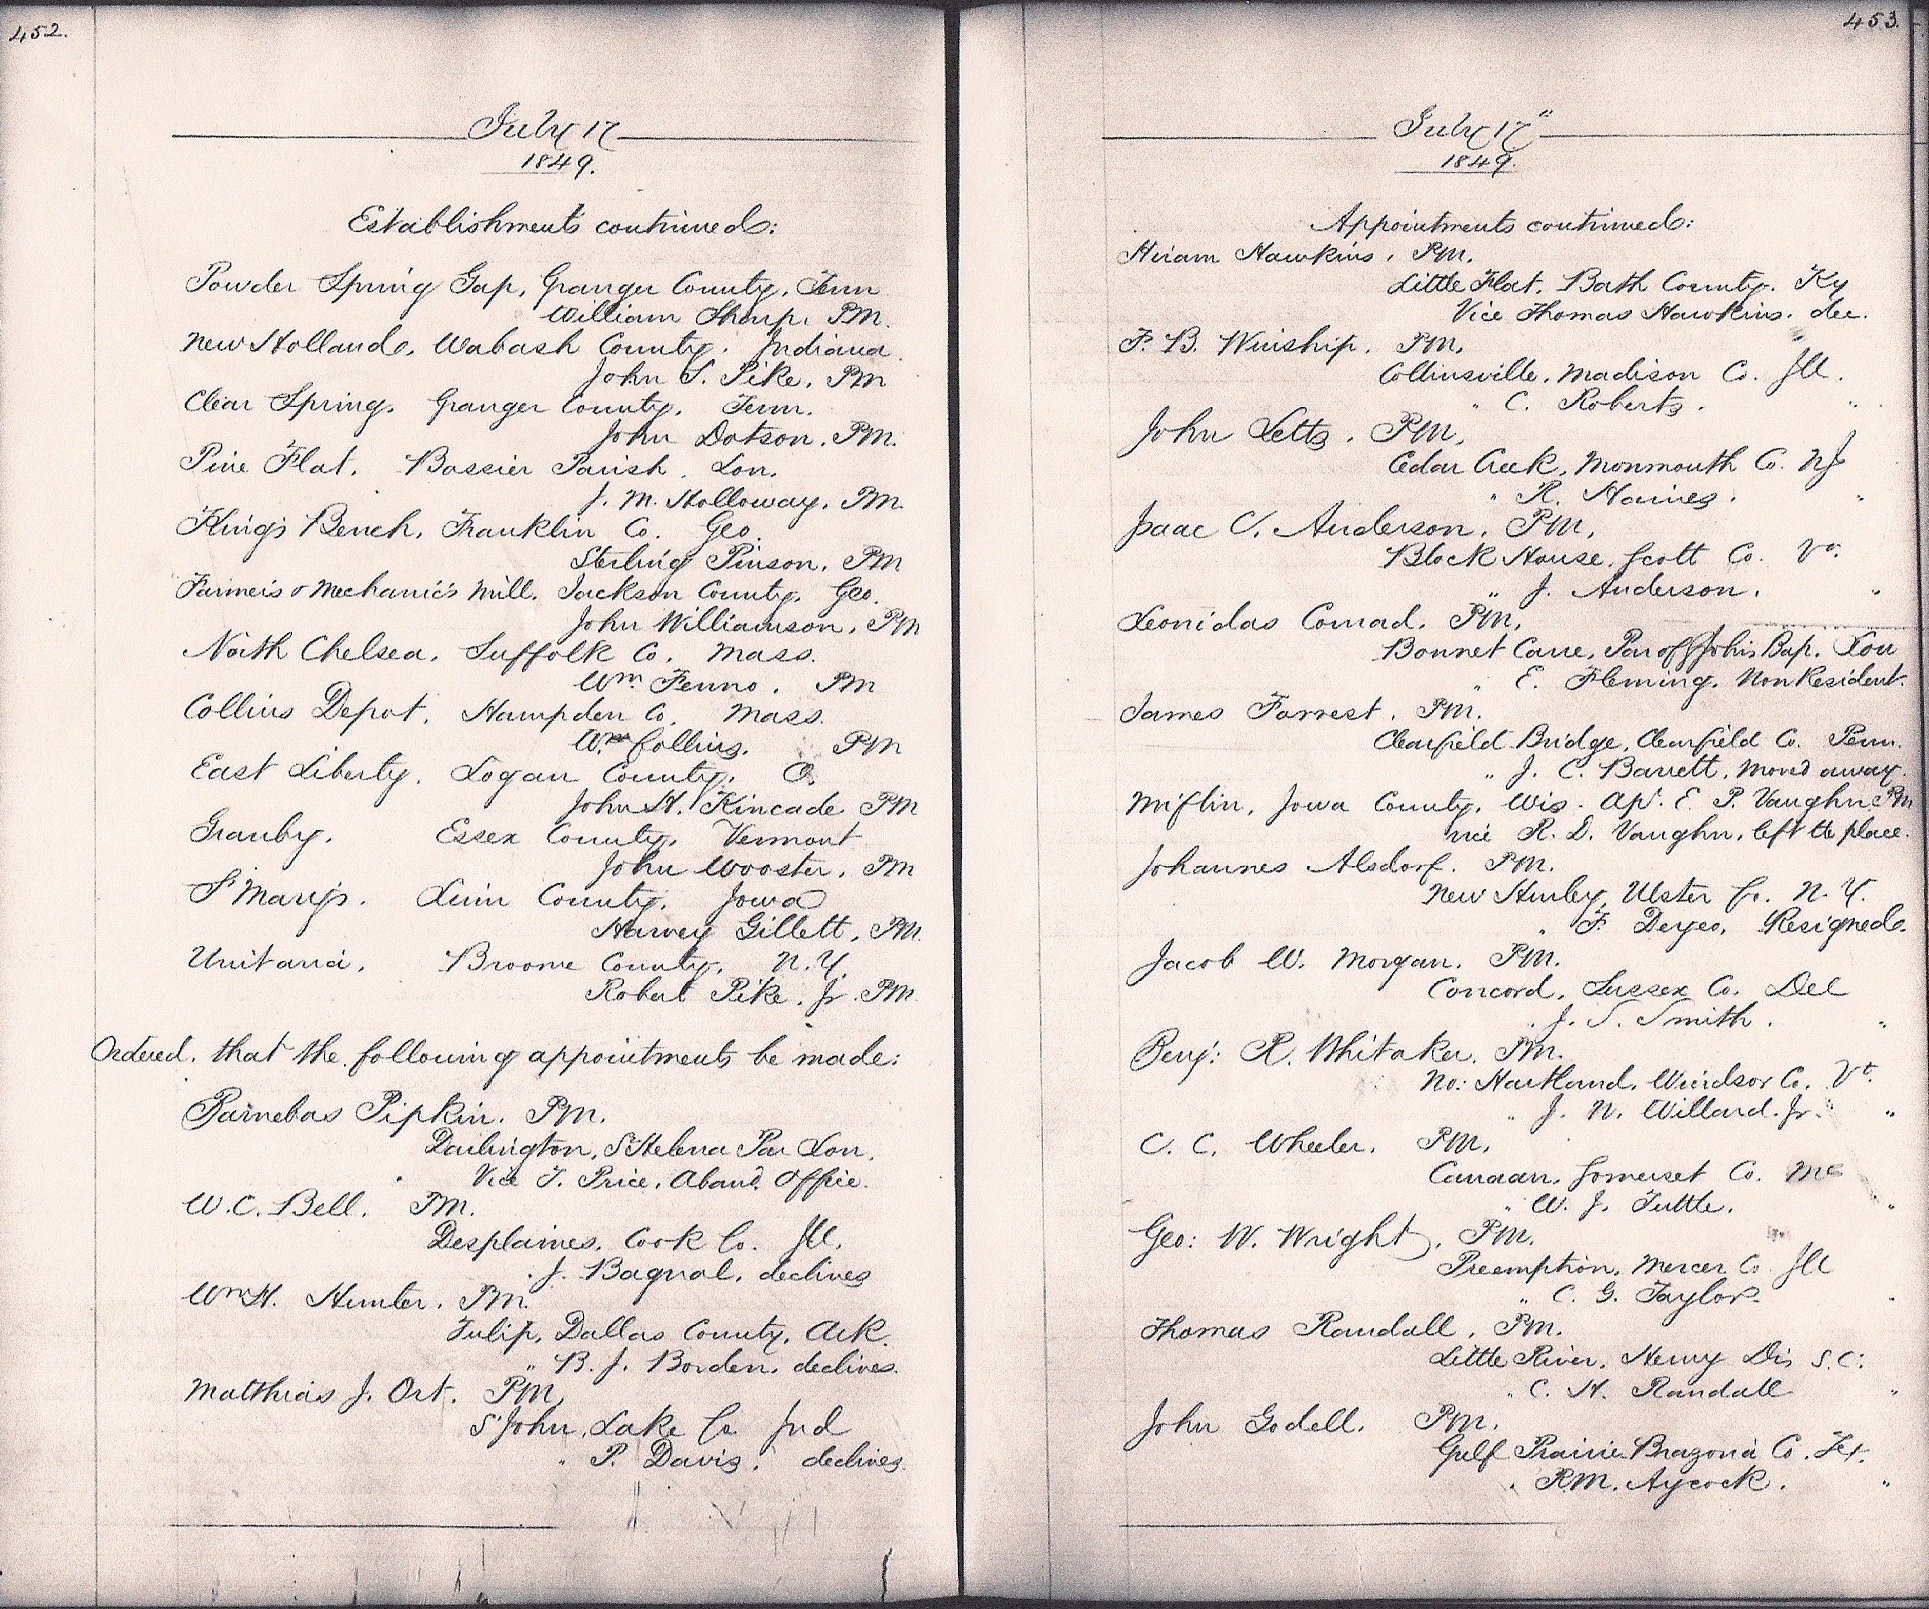 452.
July 17
1849.
Establishments continued:
Powder Spring Gap, Granger County, Tenn
William Sharp, PM.
New Holland, Wabash County, Indiana.
John S. Pike, PM
Clear Spring, Granger County, Tenn.
John Dotson, PM.
Pine Flat, Bossier Parish, Lou.
J. M. Holloway, PM.
King's Bench, Franklin Co. Geo.
Sterling Pinson, PM
Farmer's & Mechanic's Mill, Jackson County, Geo.
John Williamson, PM
North Chelsea, Suffolk Co, Mass.
Wm Fenno, PM
Collins Depot, Hampden Co. Mass.
Wm Collins, PM
East Liberty, Logan County, O.
John H. Kincade PM
Granby, Essex County, Vermont
John Wooster, PM
St Mary's. Linn County, Iowa
Harvey Gillett, PM.
Unitaria, Broome County, N.Y.
Robert Pike, Jr. PM.
Ordered, that the following appointments be made:
Barnebas Pipkin, PM.
Darlington, St Helena Par Lou.
Vice T. Price, Aband. Office.
W. C. Bell, PM.
Desplaines, Cook Co. Ill.
" J. Bagnal, declines
Wm H. Hunter, PM.
Tulip, Dallas County, Ark.
" B. J. Borden, declines.
Matthias J. Ort, PM.
St John, Lake Co Ind
" P. Davis, declines.
453.
July 17"
1849.
Appointments continued:
Hiram Hawkins, PM.
Little Flat, Bath County, Ky
Vice Thomas Hawkins, dec.
F. B. Winship, PM.
Collinsville, Madison Co. Ill.
" C. Roberts. "
John Letts, PM.
Cedar Creek, Monmouth Co. NJ
" R. Haines. "
Isaac C. Anderson, PM.
Block House, Scott Co. Va.
" J. Anderson. "
Leonidas Conrad, PM.
Bonnet Carre, Par of St John Bap. Lou
" E. Fleming, Non Resident.
James Forrest, PM.
Clearfield Bridge, Clearfield Co. Penn.
" J. C. Barrett, Moved away.
Miflin, Iowa County, Wis. Apt. E. P. Vaughn PM
vice R. D. Vaughn, left the place.
Johannes Alsdorf, PM.
New Hurley, Ulster Co. N.Y.
" F. Deyeo, Resigned.
Jacob W. Morgan, PM.
Concord, Sussex Co. Del
" J. S. Smith. "
Benj: R. Whitaker, PM.
No: Hartland, Windsor Co, Vt.
" J. N. Willard. Jr. "
C. C. Wheeler, PM.
Canaan, Somerset Co. Me
" W. J. Tuttle. "
Geo: W. Wright, PM.
Preemption, Mercer Co Ill
" C. G. Taylor. "
Thomas Randall, PM.
Little River, Henry Dis S.C:
" C. H. Randall "
John Godell, PM.
Gulf Prairie Brazoria Co. Tex.
" R.M. Aycock. "